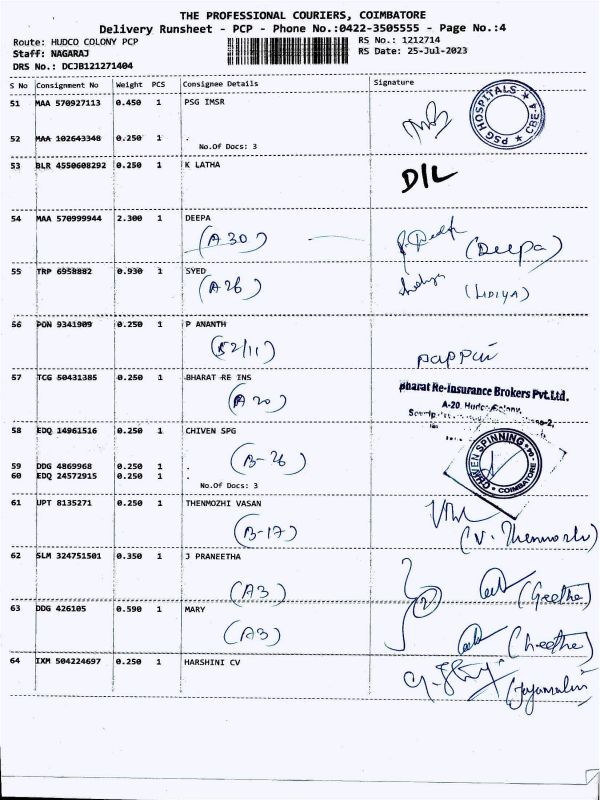 THE PROFESSIONAL COURIERS, COIMBATORE
Delivery Runsheet - PCP - Phone No.:0422-3505555 - Page No.:4
Route: HUDCO COLONY PCP RS No.: 1212714
Staff: NAGARAJ RS Date: 25-Jul-2023
DRS No.: DCJB121271404
S No Consignment No Weight PCS Consignee Details Signature
51 MAA 570927113 0.450 1 PSG IMSR
PSG HOSPITALS ★ CBE-4 ★
52 MAA 102643348 0.250 1 .
No.Of Docs: 3
53 BLR 4550608292 0.250 1 K LATHA
D/L
54 MAA 570999944 2.300 1 DEEPA
(A 30) (Deepa)
55 TRP 6958882 0.930 1 SYED
(A 26) (LIDIYA)
56 PON 9341909 0.250 1 P ANANTH
(B2/11) pappui
57 TCG 50431385 0.250 1 BHARAT RE INS
(A 20)
Bharat Re-Insurance Brokers Pvt.Ltd.
A-20, Hudco Colony,
58 EDQ 14961516 0.250 1 CHIVEN SPG
(B-26)
SPINNING COIMBATORE
59 DDG 4869968 0.250 1
60 EDQ 24572915 0.250 1 .
No.Of Docs: 3
61 UPT 8135271 0.250 1 THENMOZHI VASAN
(B-17) (V. Thenmozhi)
62 SLM 324751501 0.350 1 J PRANEETHA
(A3) (2) (Geetha)
63 DDG 426105 0.590 1 MARY
(A3) (Geetha)
64 IXM 504224697 0.250 1 HARSHINI CV